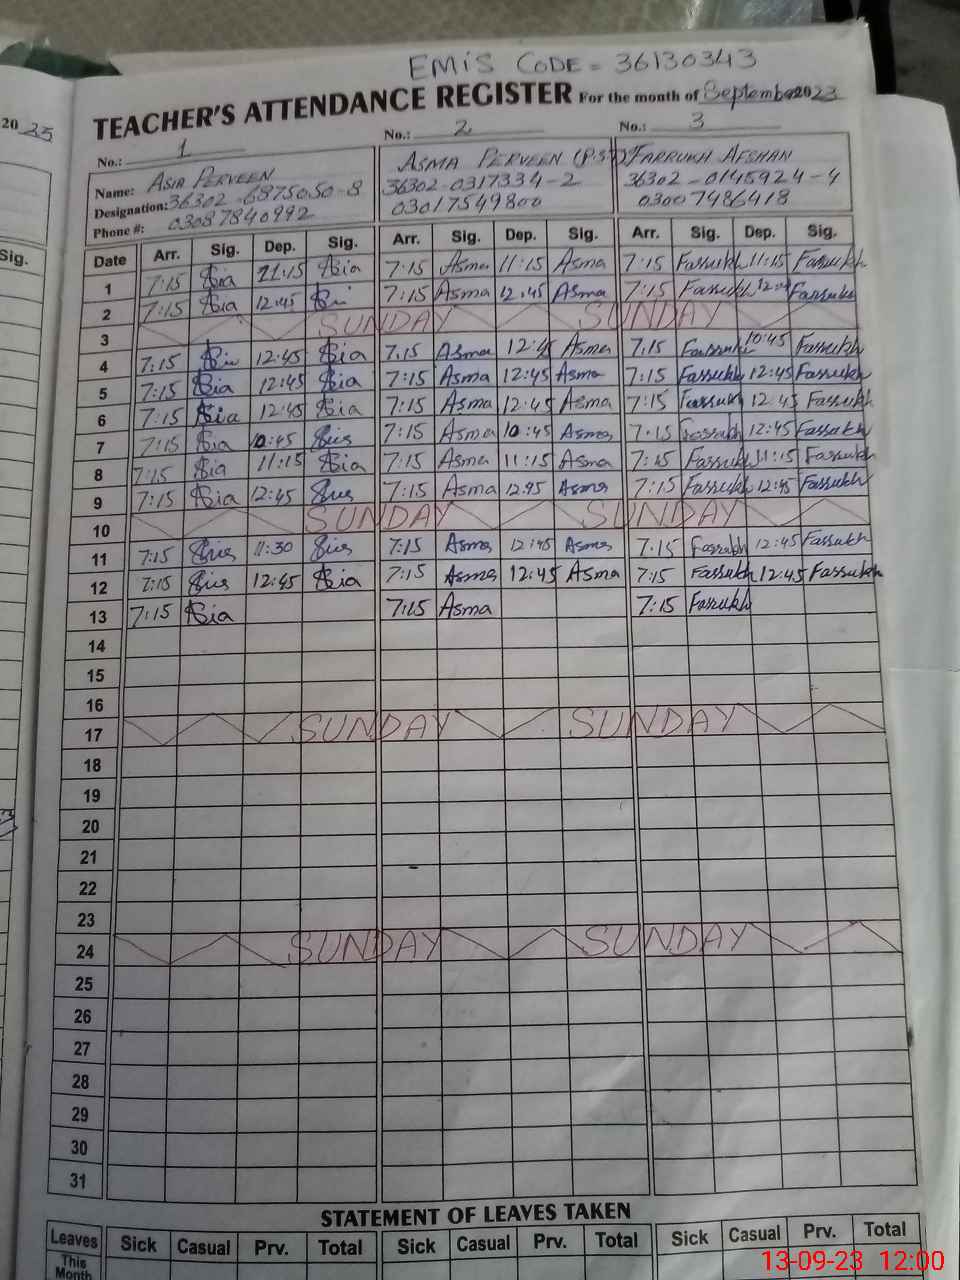 EMIS CODE = 36130343
TEACHER'S ATTENDANCE REGISTER For the month of September 2023
20 23
No.: 1 No.: 2 No.: 3
Name: ASIA PERVEEN ASMA PERVEEN (P.S.T) FARRUKH AFSHAN
Designation: 36302-6875050-8 36302-0317334-2 36302-0145924-4
Phone #: 03087840992 03017549800 03007486418
Sig.
Date Arr. Sig. Dep. Sig. Arr. Sig. Dep. Sig. Arr. Sig. Dep. Sig.
1 7:15 Asia 11:15 Asia 7:15 Asma 11:15 Asma 7:15 Farrukh 11:15 Farrukh
2 7:15 Asia 12:45 7:15 Asma 12:45 Asma 7:15 Farrukh Farrukh
3 SUNDAY SUNDAY
4 7:15 12:45 Asia 7:15 Asma 12:45 Asma 7:15 Farrukh 10:45 Farrukh
5 7:15 Asia 12:45 Asia 7:15 Asma 12:45 Asma 7:15 Farrukh 12:45 Farrukh
6 7:15 Asia 12:45 Asia 7:15 Asma 12:45 Asma 7:15 Farrukh 12:45 Farrukh
7 7:15 Asia 10:45 7:15 Asma 10:45 Asma 7:15 Farrukh 12:45 Farrukh
8 7:15 Asia 11:15 Asia 7:15 Asma 11:15 Asma 7:15 Farrukh 11:15 Farrukh
9 7:15 Asia 12:45 7:15 Asma 12:45 Asma 7:15 Farrukh 12:45 Farrukh
10 SUNDAY SUNDAY
11 7:15 11:30 7:15 Asma 12:45 Asma 7:15 Farrukh 12:45 Farrukh
12 7:15 12:45 Asia 7:15 Asma 12:45 Asma 7:15 Farrukh 12:45 Farrukh
13 7:15 Asia 7:15 Asma 7:15 Farrukh
14
15
16
17 SUNDAY SUNDAY
18
19
20
21
22
23
24 SUNDAY SUNDAY
25
26
27
28
29
30
31
STATEMENT OF LEAVES TAKEN
Leaves Sick Casual Prv. Total Sick Casual Prv. Total Sick Casual Prv. Total
This Month
13-09-23 12:00